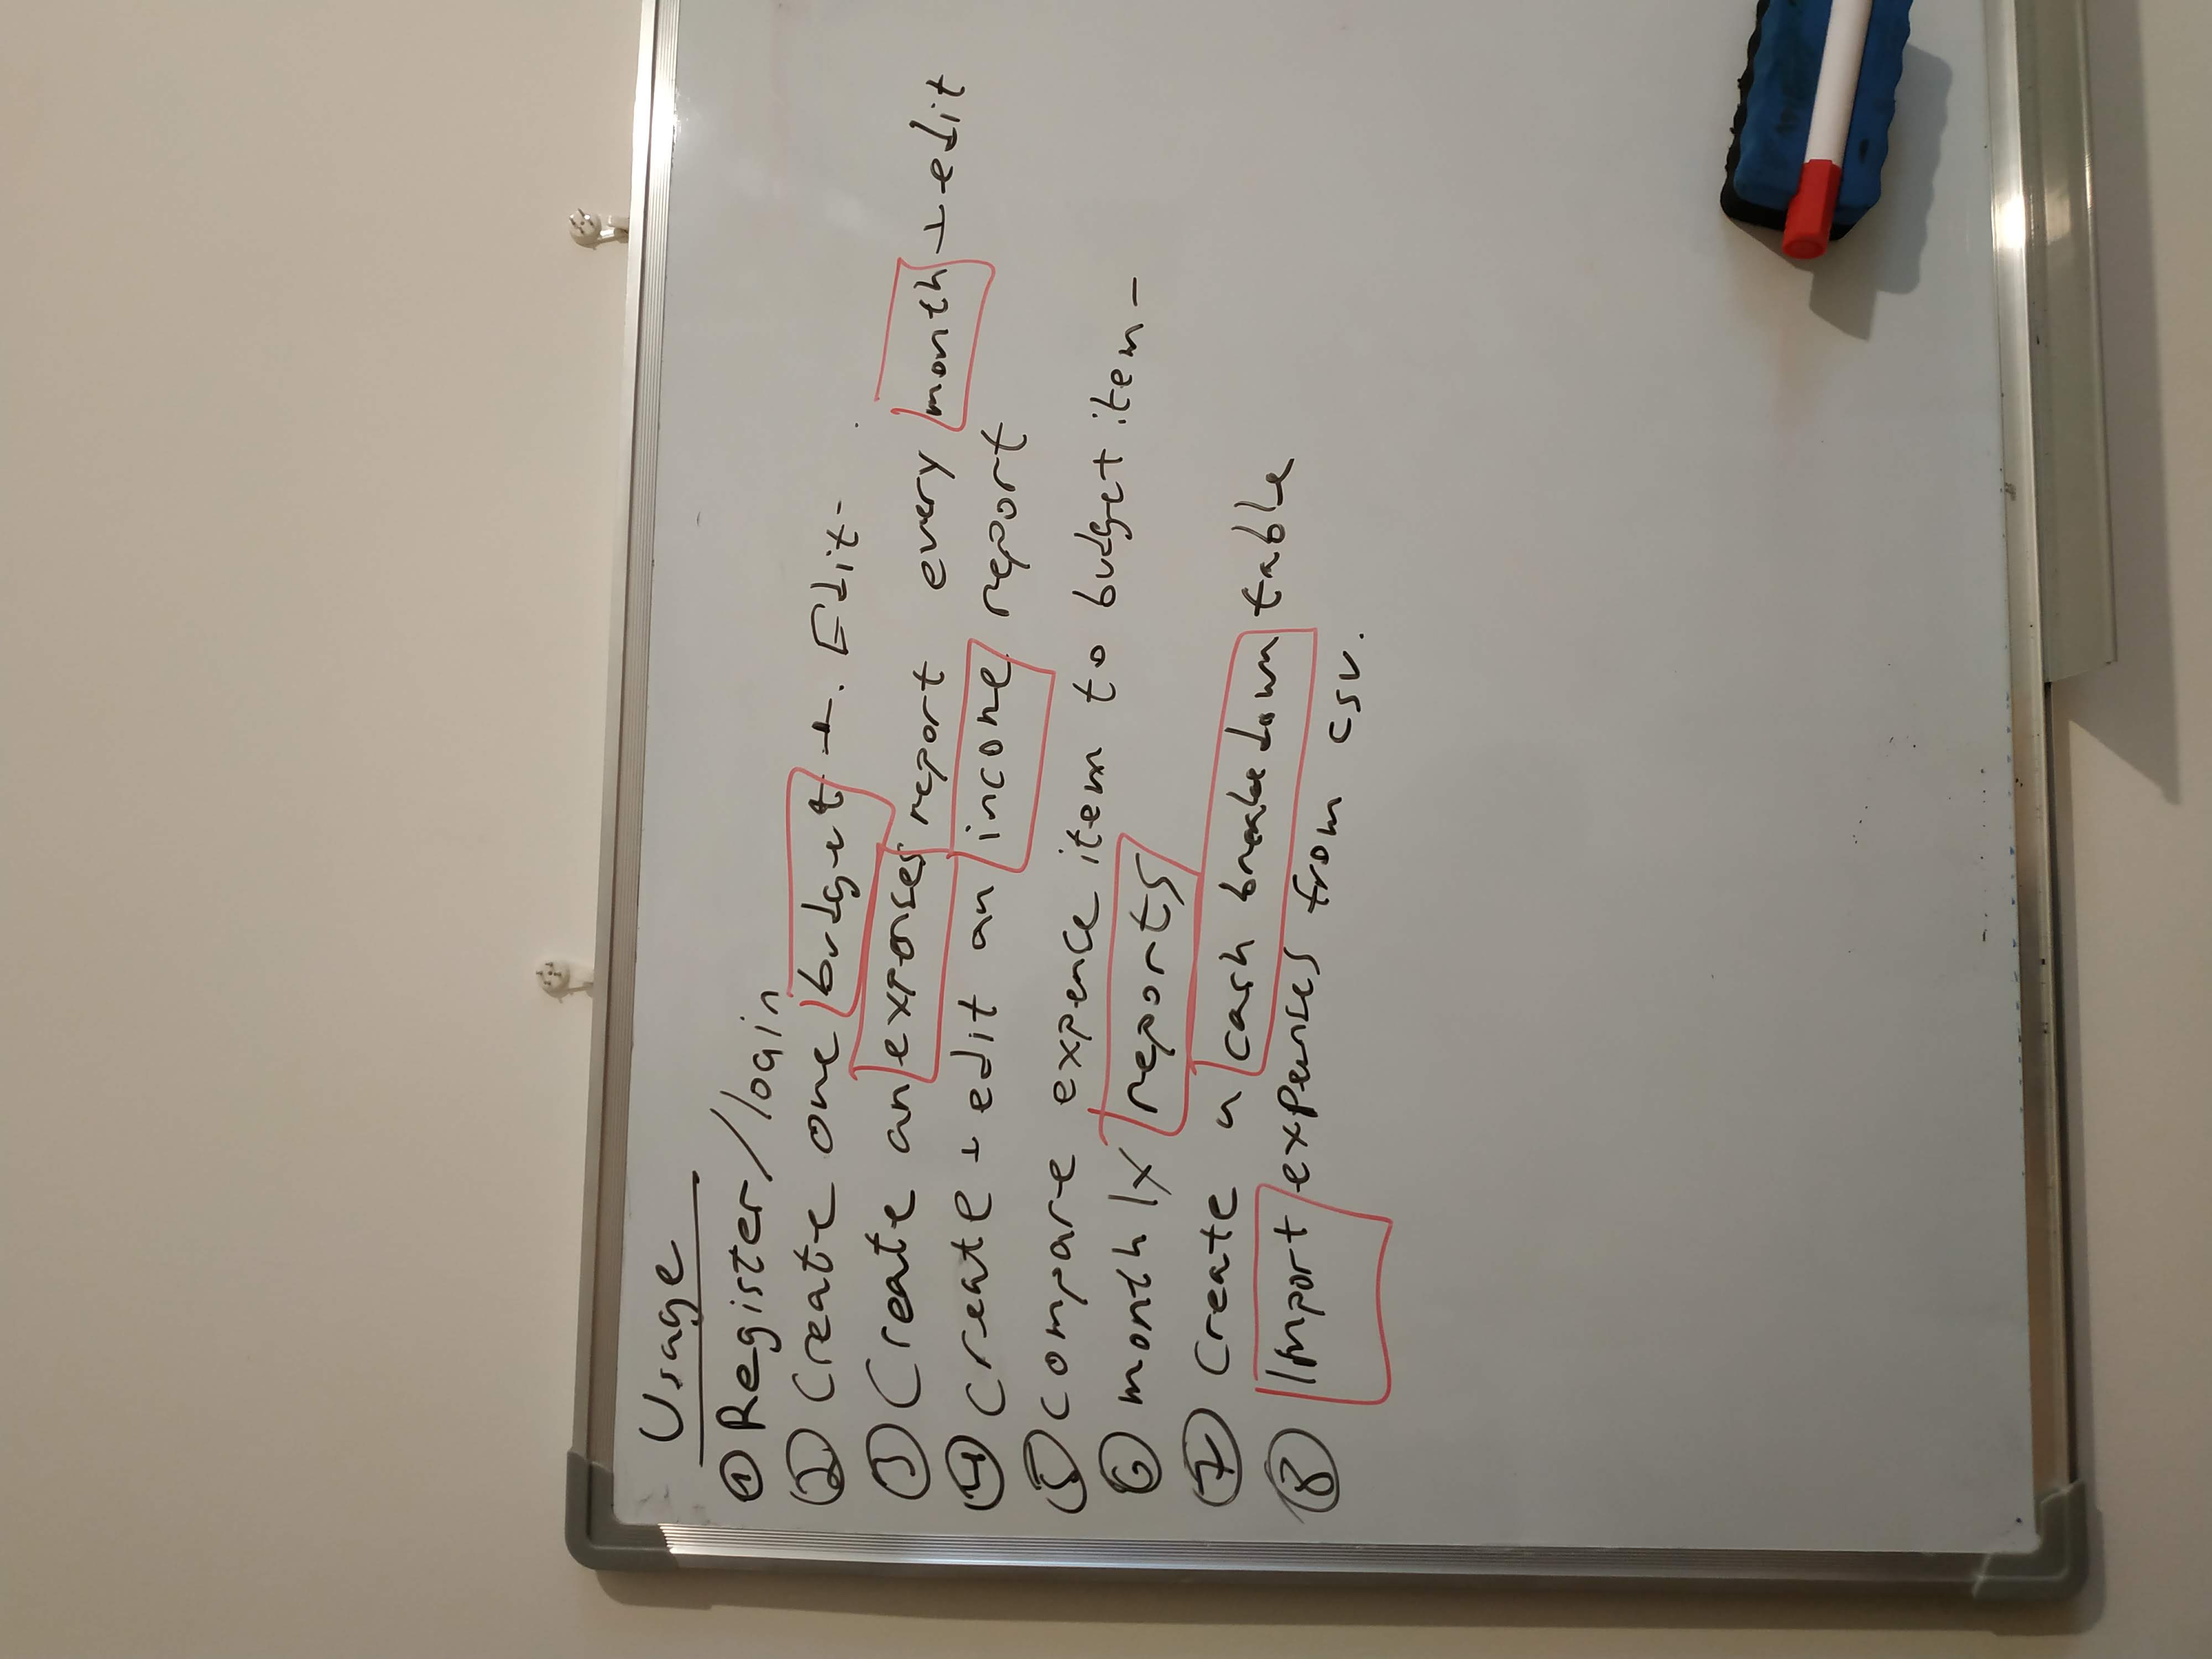 Usage
① Register/login
② Create one budget +. Edit-
③ Create an expenses report every month + edit
④ create + edit an income report
⑤ compare expence item to budget item-
⑥ monthly reports
⑦ Create a cash breakdown table
⑧ Import expenses from csv.